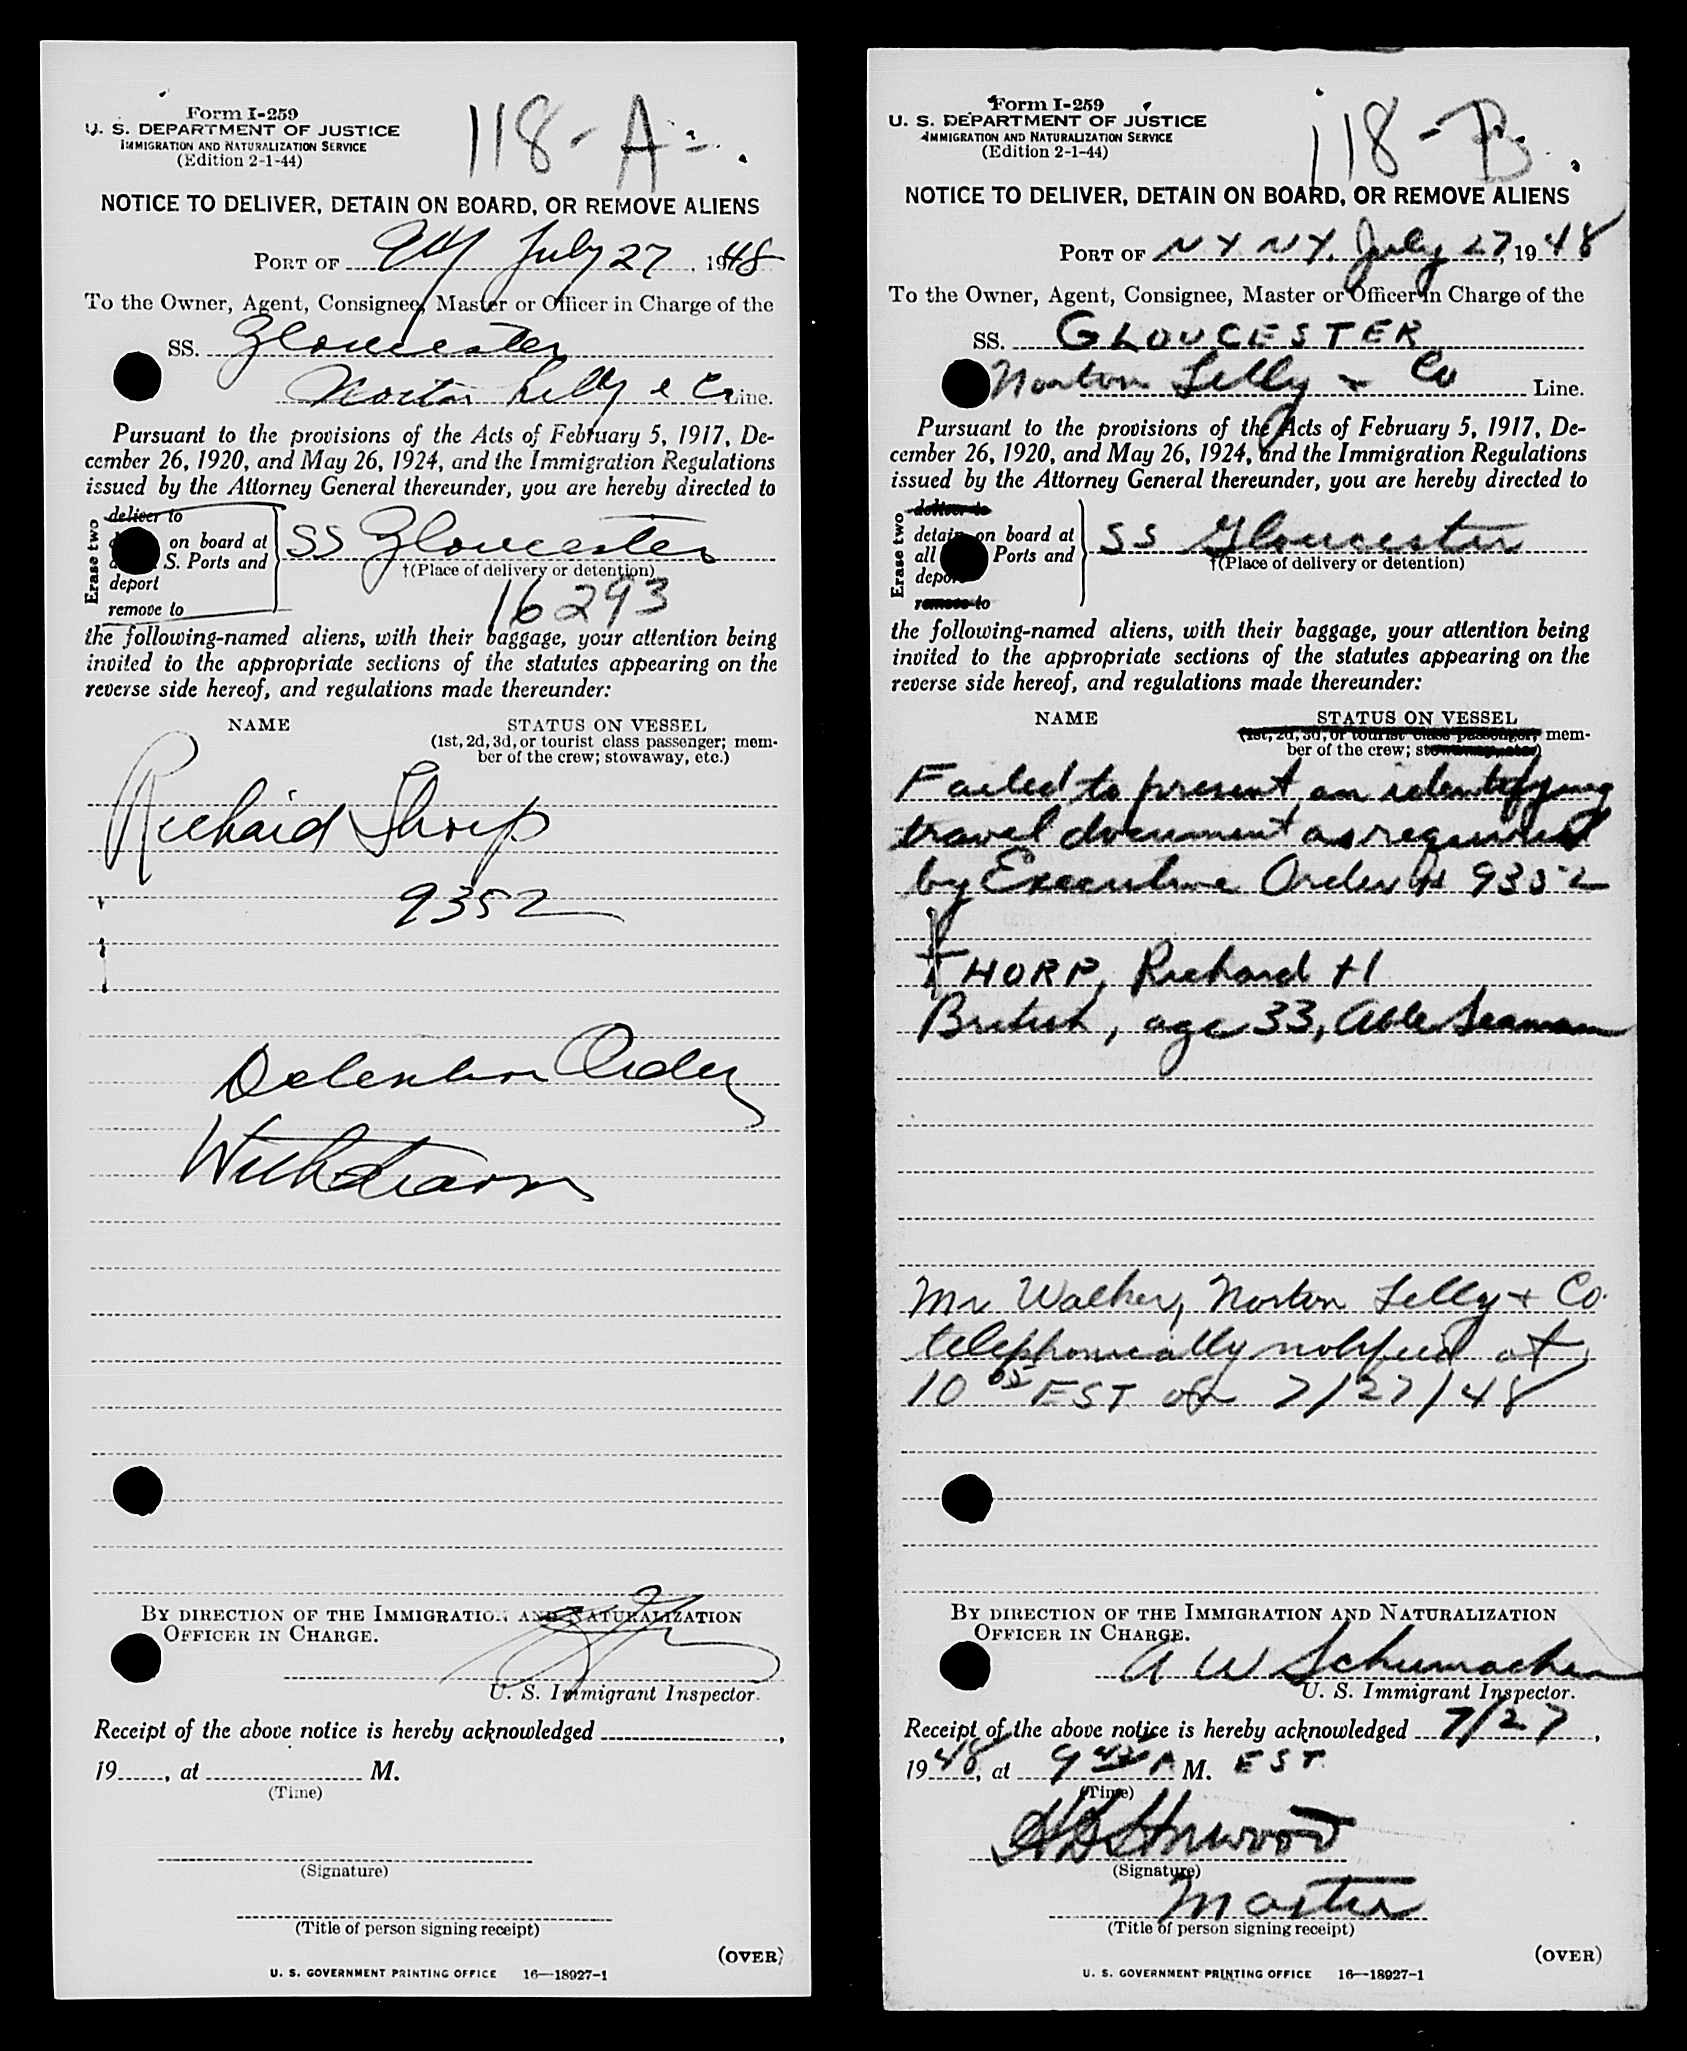 118-A
Form I-259
U. S. DEPARTMENT OF JUSTICE
IMMIGRATION AND NATURALIZATION SERVICE
(Edition 2-1-44)
NOTICE TO DELIVER, DETAIN ON BOARD, OR REMOVE ALIENS
PORT OF NY July 27, 1948
To the Owner, Agent, Consignee, Master or Officer in Charge of the
SS. Gloucester
Norton Lilly & Co Line.
Pursuant to the provisions of the Acts of February 5, 1917, De-
cember 26, 1920, and May 26, 1924, and the Immigration Regulations
issued by the Attorney General thereunder, you are hereby directed to
Erase two
deliver to
on board at
S. Ports and
deport
remove to
SS Gloucester
†(Place of delivery or detention)
16293
the following-named aliens, with their baggage, your attention being
invited to the appropriate sections of the statutes appearing on the
reverse side hereof, and regulations made thereunder:
NAME STATUS ON VESSEL
(1st, 2d, 3d, or tourist class passenger; mem-
ber of the crew; stowaway, etc.)
Richard Thorp
9352
Detention Order
Withdrawn
BY DIRECTION OF THE IMMIGRATION AND NATURALIZATION
OFFICER IN CHARGE.
U. S. Immigrant Inspector.
Receipt of the above notice is hereby acknowledged ,
19 , at M.
(Time)
(Signature)
(Title of person signing receipt)
(OVER)
U. S. GOVERNMENT PRINTING OFFICE 16—18927-1
118-B
Form I-259
U. S. DEPARTMENT OF JUSTICE
IMMIGRATION AND NATURALIZATION SERVICE
(Edition 2-1-44)
NOTICE TO DELIVER, DETAIN ON BOARD, OR REMOVE ALIENS
PORT OF NY NY, July 27, 1948
To the Owner, Agent, Consignee, Master or Officer in Charge of the
SS. GLOUCESTER
Norton Lilly & Co Line.
Pursuant to the provisions of the Acts of February 5, 1917, De-
cember 26, 1920, and May 26, 1924, and the Immigration Regulations
issued by the Attorney General thereunder, you are hereby directed to
Erase two
deliver to
detain on board at
all Ports and
depo
remove to
SS Gloucester
†(Place of delivery or detention)
the following-named aliens, with their baggage, your attention being
invited to the appropriate sections of the statutes appearing on the
reverse side hereof, and regulations made thereunder:
NAME STATUS ON VESSEL
(1st, 2d, 3d, or tourist class passenger; mem-
ber of the crew; stowaway, etc.)
Failed to present an identifying
travel document as required
by Executive Order # 9352
THORP, Richard H
British, age 33, Able Seaman
Mr Walker, Norton Lilly & Co.
telephonically notified at
10 05 EST on 7/27/48
BY DIRECTION OF THE IMMIGRATION AND NATURALIZATION
OFFICER IN CHARGE.
A W Schumacher
U. S. Immigrant Inspector.
Receipt of the above notice is hereby acknowledged 7/27,
1948, at 9 45 A M. EST
(Time)
(Signature)
Master
(Title of person signing receipt)
(OVER)
U. S. GOVERNMENT PRINTING OFFICE 16—18927-1